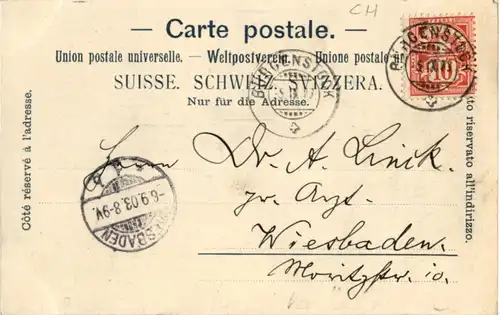 CH
— Carte postale. —
Union postale universelle. — Weltpostverein. — Unione postale
SUISSE. SCHWEIZ. SVIZZERA.
Nur für die Adresse.
Côté réservé à l'adresse.
riservato all'indirizzo.
BÜRGENSTOCK
BÜRGENSTOCK
10
Herrn Dr. A. Linck.
pr. Arzt.
Wiesbaden.
Moritzstr. 10.
WIESBADEN
-6.9.03.8-9V.